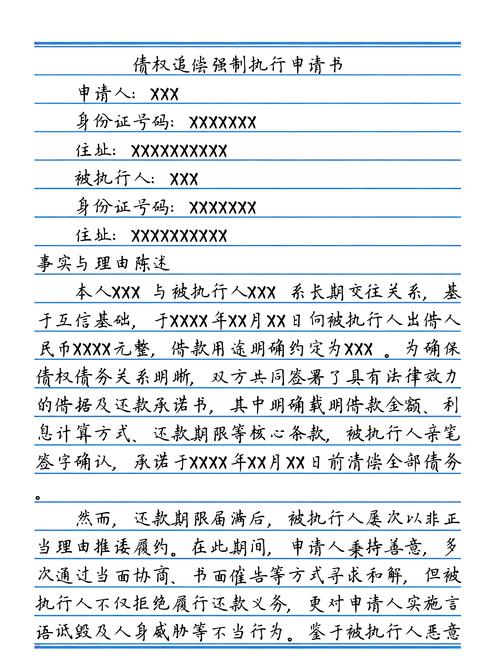 债权追偿强制执行申请书
申请人：XXX
身份证号码：XXXXXXX
住址：XXXXXXXXXX
被执行人：XXX
身份证号码：XXXXXXX
住址：XXXXXXXXXX
事实与理由陈述
本人XXX 与被执行人XXX 系长期交往关系，基
于互信基础，于XXXX年XX月XX日向被执行人出借人
民币XXXX元整，借款用途明确约定为XXX 。为确保
债权债务关系明晰，双方共同签署了具有法律效力
的借据及还款承诺书，其中明确载明借款金额、利
息计算方式、还款期限等核心条款，被执行人亲笔
签字确认，承诺于XXXX年XX月XX日前清偿全部债务
。
然而，还款期限届满后，被执行人屡次以非正
当理由推诿履约。在此期间，申请人秉持善意，多
次通过当面协商、书面催告等方式寻求和解，但被
执行人不仅拒绝履行还款义务，更对申请人实施言
语诋毁及人身威胁等不当行为。鉴于被执行人恶意